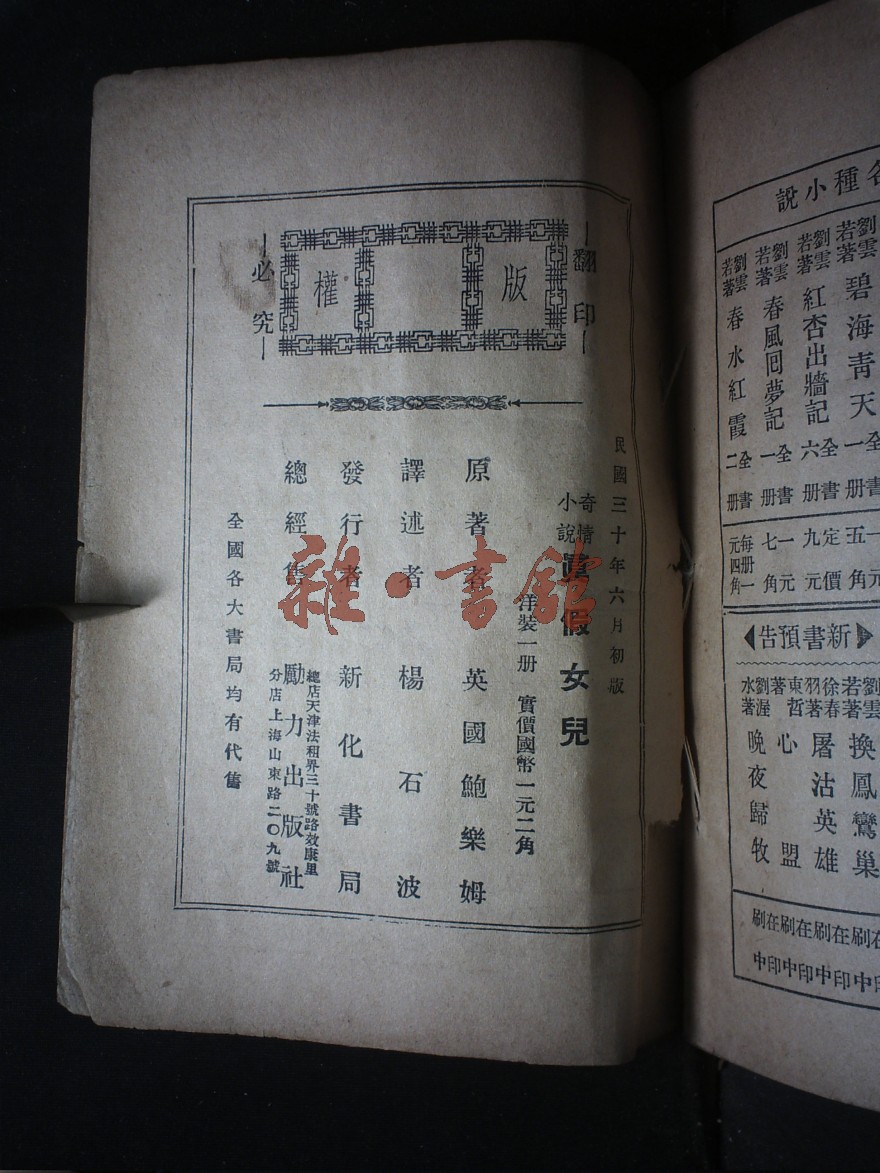 版權
翻印
必究
民國三十年六月初版
奇情
小說
眞假女兒
洋裝一册 實價國幣一元二角
原著者 英國鮑樂姆
譯述者 楊石波
發行者 新化書局
總經售 勵力出版社
總店天津法租界三十號路效康里
分店上海山東路二〇九號
全國各大書局均有代售
雜·書館
各種小說
劉雲若著 碧海青天 全書一册 一元五角
劉雲若著 紅杏出牆記 全書六册 定價九元
劉雲若著 春風囘夢記 全書一册 一元七角
劉雲若著 春水紅霞 全書二册 每册一元四角
新書預告
劉雲若著 換鳳鸞巢 在印刷中
徐春羽著 屠沽英雄 在印刷中
東哲著 心盟 在印刷中
劉渥水著 晚夜歸牧 在印刷中